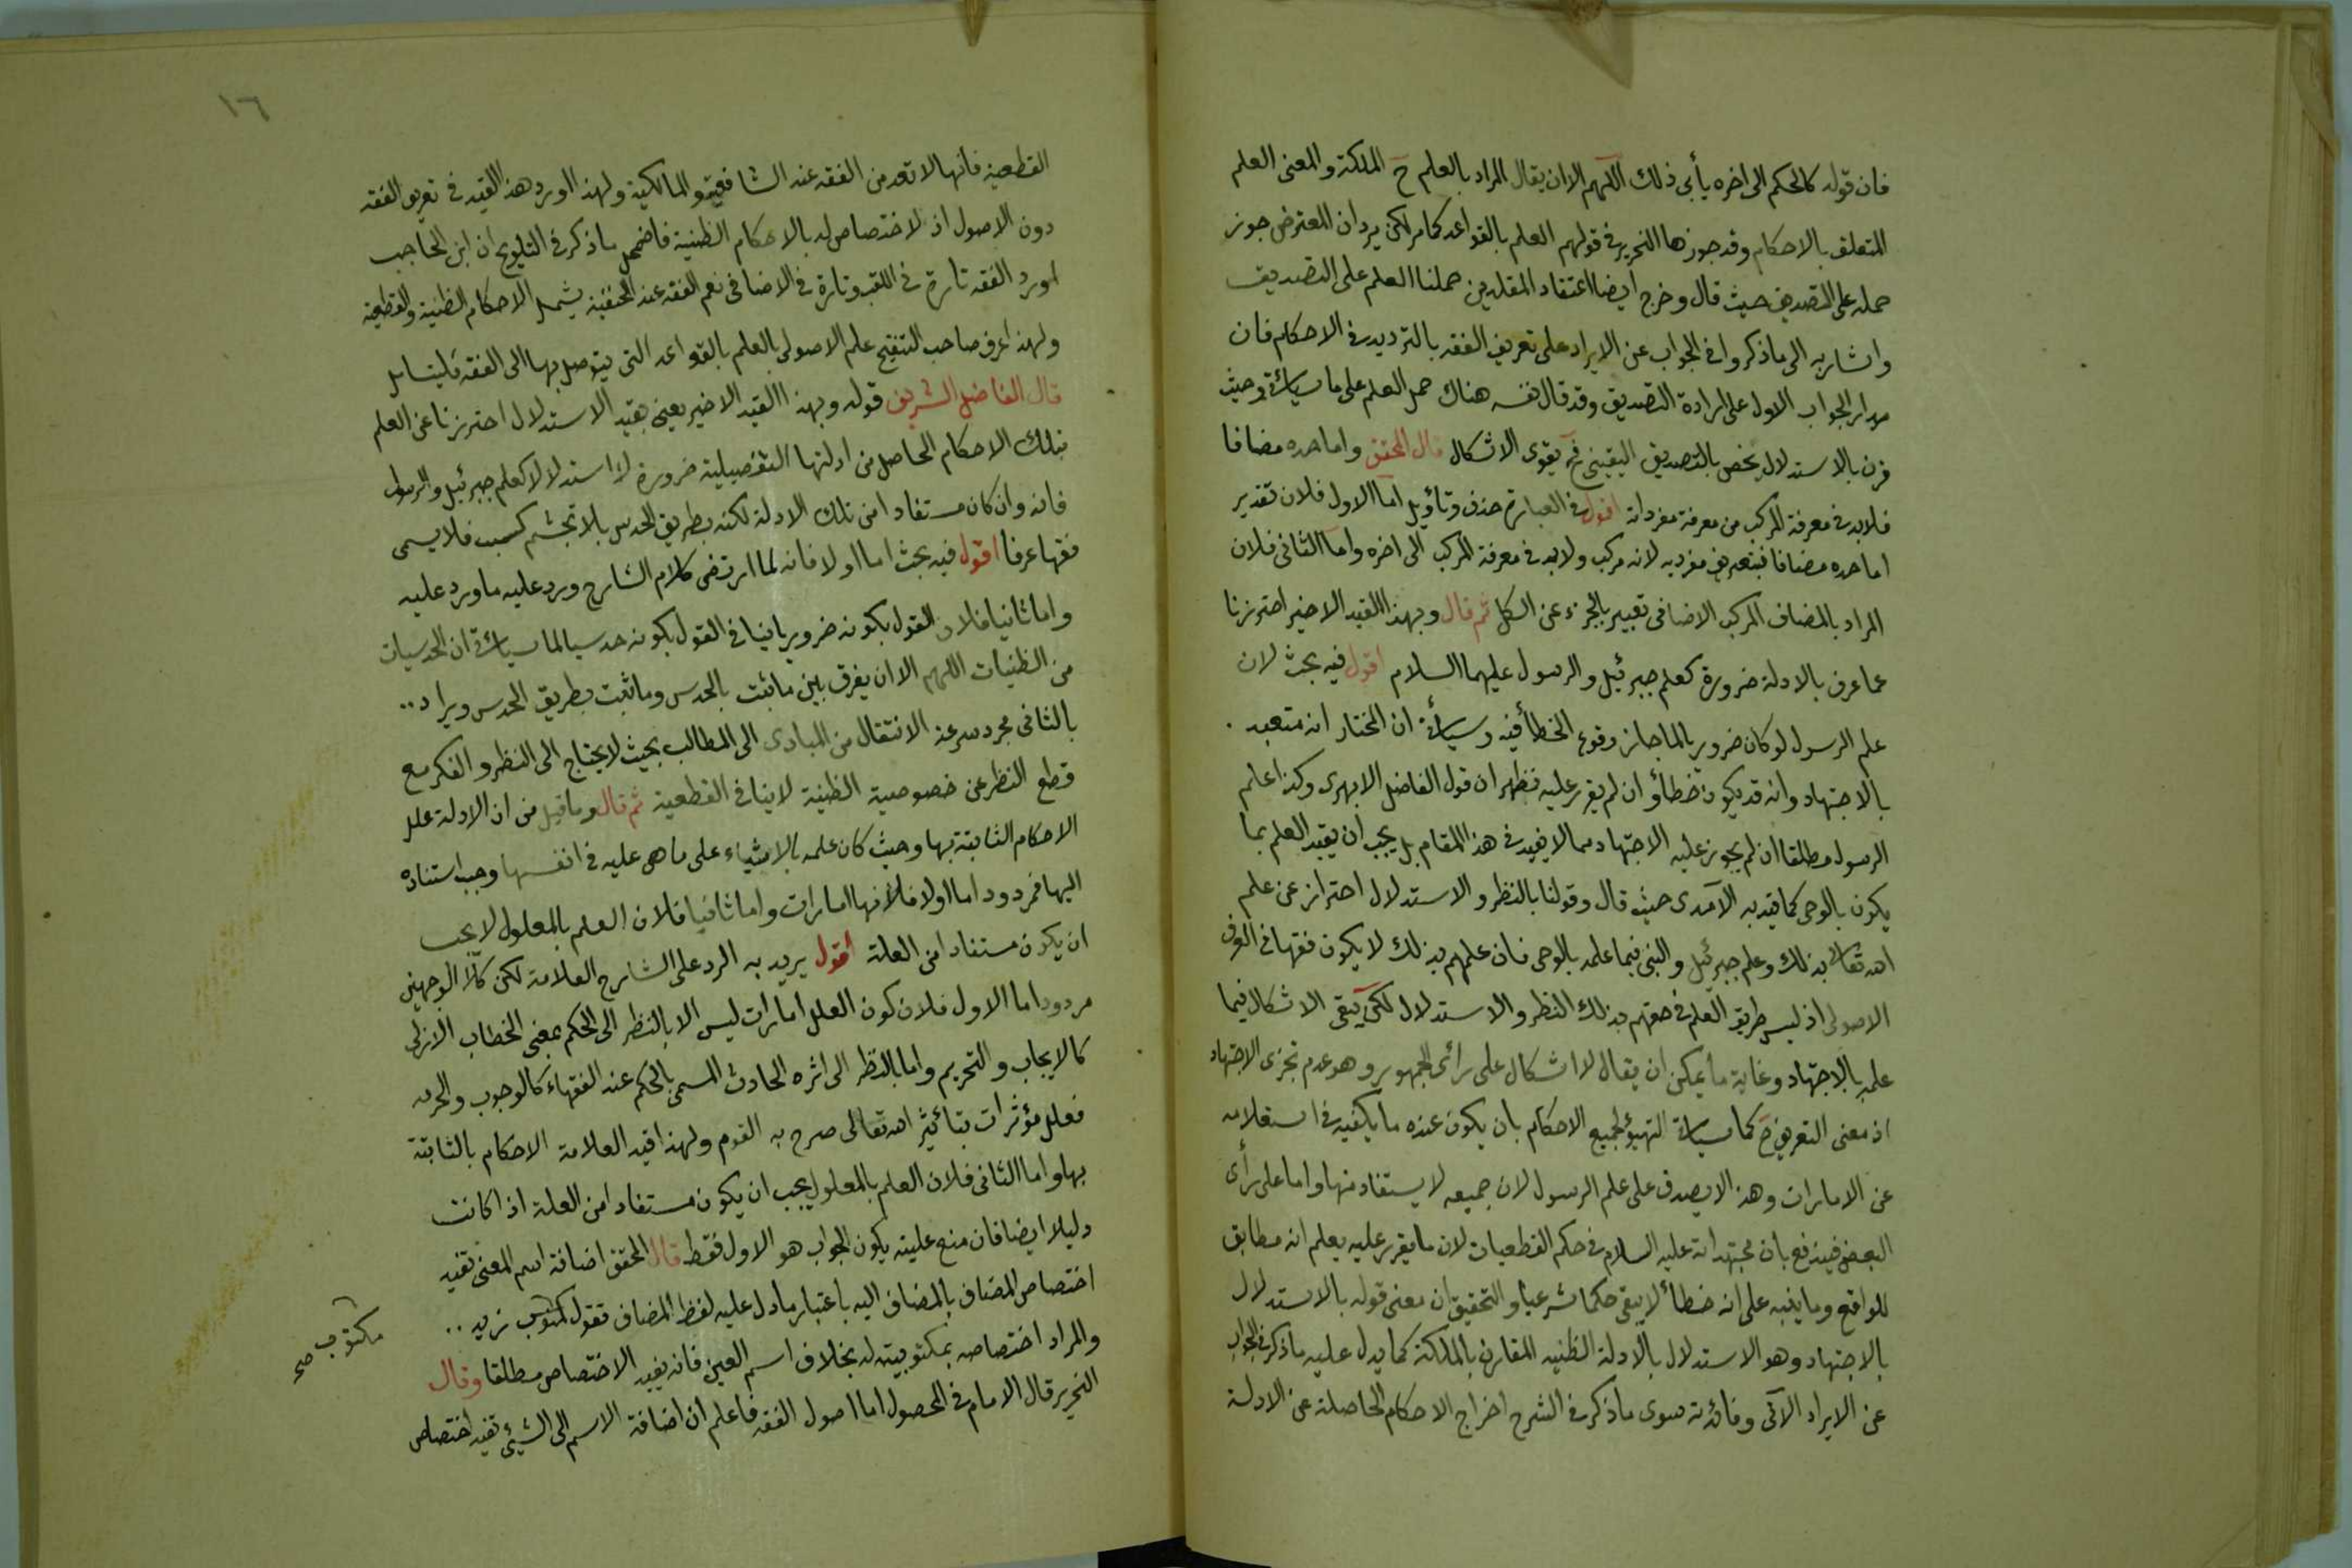 فان قوله كالحكم الى اخره يأبى ذلك اللهم الا ان يقال المراد بالعلم ح الملكة والمعنى العلم
المتعلق بالاحكام وقد جوزها النحرير فى قولهم العلم بالقواعد كما مر لكن يرد ان المعترض جوز
حمله على التصديق حيث قال وخرج ايضا اعتقاد المقلدين حملنا العلم على التصديق
واشار به الى ما ذكروا فى الجواب عن الايراد على تعريف الفقه بالترديد فى الاحكام فان
مدار الجواب الاول على ارادة التصديق وقد قال نفسه هناك حمل العلم على ما سيأتى وحيث
قرن بالاستدلال يخص بالتصديق اليقينى فح يقوى الاشكال قال المحقق واما حده مضافا
فلا بد فى معرفة المركب من معرفة مفرداته اقول فى العبارة حذف وتأويل اما الاول فلان تقدير
اما حده مضافا فبتعريف مفرديه لانه مركب ولا بد فى معرفة المركب الى اخره واما الثانى فلان
المراد بالمضاف المركب الاضافى تعبير بالجزء عن الكل ثم قال وبهذا القيد الاخير احترزنا
عما عرف بالادلة ضرورة كعلم جبرئيل والرسول عليهما السلام اقول فيه بحث لان
علم الرسول لو كان ضروريا لما جاز وقوع الخطأ فيه وسيأتى ان المختار انه متعبد .
بالاجتهاد وانه قد يكون خطأ وان لم يقرر عليه فظهر ان قول الفاضل الابهرى وكذا علم
الرسول مطلقا ان لم يجوز عليه الاجتهاد مما لا يفيد فى هذا المقام بل يجب ان يقيد العلم بما
يكون بالوحى كما قيد به الآمدى حيث قال وقولنا بالنظر والاستدلال احتراز عن علم
الله تعالى بذلك وعلم جبرئيل والنبى فيما علمه بالوحى فان علمهم بذلك لا يكون فقها فى العرف
الاصولى اذ ليس طريق العلم فى حقهم بذلك النظر والاستدلال لكن يبقى الاشكال فيما
علمه بالاجتهاد وغاية ما يمكن ان يقال لا اشكال على رائ الجمهور وهو عدم تجزى الاجتهاد
اذ معنى التعريف ح كما سيأتى التهيؤ لجميع الاحكام بان يكون عنده ما يكفيه فى استعلامه
عن الامارات وهذا لا يصدق على علم الرسول لان جميعه لا يستفاد منها واما على رأى
البعض فيندفع بان مجتهداته عليه السلام فى حكم القطعيات لان ما يقرر عليه يعلم انه مطابق
للواقع وما ينبه على انه خطأ لا يبقى حكما شرعيا والتحقيق ان معنى قوله بالاستدلال
بالاجتهاد وهو الاستدلال بالادلة الظنيه المقارن بالملكة كما يدل عليه ما ذكر فى الجواب
عن الايراد الآتى وفائدته سوى ما ذكر فى الشرح اخراج الاحكام الحاصلة عن الادلة
١٦
القطعية فانها لا تعد من الفقه عند الشافعية والمالكية ولهذا اورد هذا القيد فى تعريف الفقه
دون الاصول اذ لا اختصاص له بالاحكام الظنية فاضمحل ما ذكر فى التلويح ان ابن الحاجب
اورد الفقه تارة فى اللقب وتارة فى الاضافى نعم الفقه عند الحنفية يشمل الاحكام الظنية والقطعية
ولهذا عرف صاحب التنقيح علم الاصول بالعلم بالقواعد التى يتوصل بها الى الفقه فليتأمل
قال الفاضل الشريف قوله وبهذا القيد الاخير يعنى بقيد الاستدلال احترزنا عن العلم
بتلك الاحكام الحاصل من ادلتها التفصيلية ضرورة لا استدلالا كعلم جبرئيل والرسول
فانه وان كان مستفادا من تلك الادلة لكنه بطريق الحدس بلا تجشم كسب فلا يسمى
فقها عرفا اقول فيه بحث اما اولا فانه لما ارتضى كلام الشارح ورد عليه ما ورد عليه
واما ثانيا فلان القول بكونه ضروريا ينافى القول بكونه حدسيا لما سيأتى ان الحدسيات
من الظنيات اللهم الا ان يفرق بين ما ثبت بالحدس وما ثبت بطريق الحدس ويراد ..
بالثانى مجرد سرعة الانتقال من المبادى الى المطالب بحيث لا يحتاج الى النظر والفكر مع
قطع النظر عن خصوصية الظنية لا ينافى القطعية ثم قال وما قيل من ان الادلة علل
الاحكام الثابتة بها وحيث كان علمه بالاشياء على ما هى عليه فى انفسها وجب استناده
اليها فمردود اما اولا فلانها امارات واما ثانيا فلان العلم بالمعلول لا يجب
ان يكون مستفادا من العلة اقول يريد به الرد على الشارح العلامة لكن كلا الوجهين
مردود اما الاول فلان كون العلل امارات ليس الا بالنظر الى الحكم بمعنى الخطاب الازلى
كالايجاب والتحريم واما بالنظر الى اثره الحادث المسمى بالحكم عند الفقهاء كالوجوب والحرمه
فعلل مؤثرات بتأثير الله تعالى صرح به القوم ولهذا قيد العلامة الاحكام بالثابتة
بها واما الثانى فلان العلم بالمعلول يجب ان يكون مستفادا من العلة اذا كانت
دليلا ايضا فان منع عليته يكون الجواب هو الاول فقط قال المحقق اضافة اسم المعنى تفيد
اختصاص المضاف بالمضاف اليه باعتبار ما دل عليه لفظ المضاف تقول مكتوب زيد ..
والمراد اختصاصه بمكتوبيته له بخلاف اسم العين فانه يفيد الاختصاص مطلقا وقال
النحرير قال الامام فى المحصول اما اصول الفقه فاعلم ان اضافة الاسم الى الشيئ تفيد اختصاص
مكتوب صح